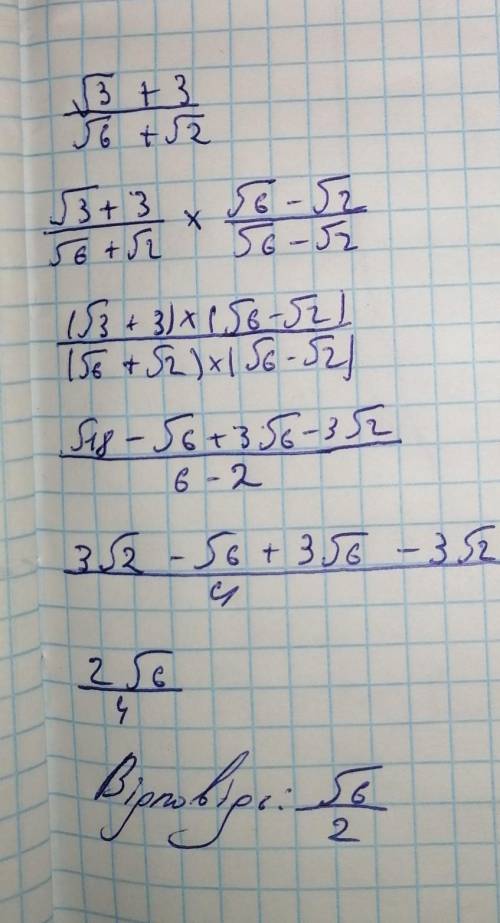 (√3 + 3)/(√6 + √2)
(√3 + 3)/(√6 + √2) × (√6 - √2)/(√6 - √2)
((√3 + 3)×(√6 - √2))/((√6 + √2)×(√6 - √2))
(√18 - √6 + 3√6 - 3√2)/(6 - 2)
(3√2 - √6 + 3√6 - 3√2)/4
(2√6)/4
Відповідь: √6/2